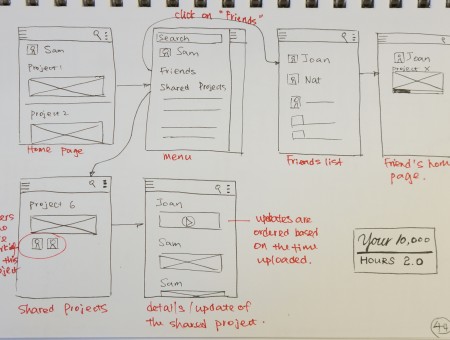 click on "Friends"
Sam
Project 1
project 2
Home page
Search
Sam
Friends
Shared Projects
Menu
Joan
Nat
Friends list
Joan
project X
Friend's home
page.
Project 6
this
Shared projects
Joan
Sam
Sam
details/update of
the shared project.
updates are
ordered based
on the time
uploaded.
Your 10,000
HOURS 2.0